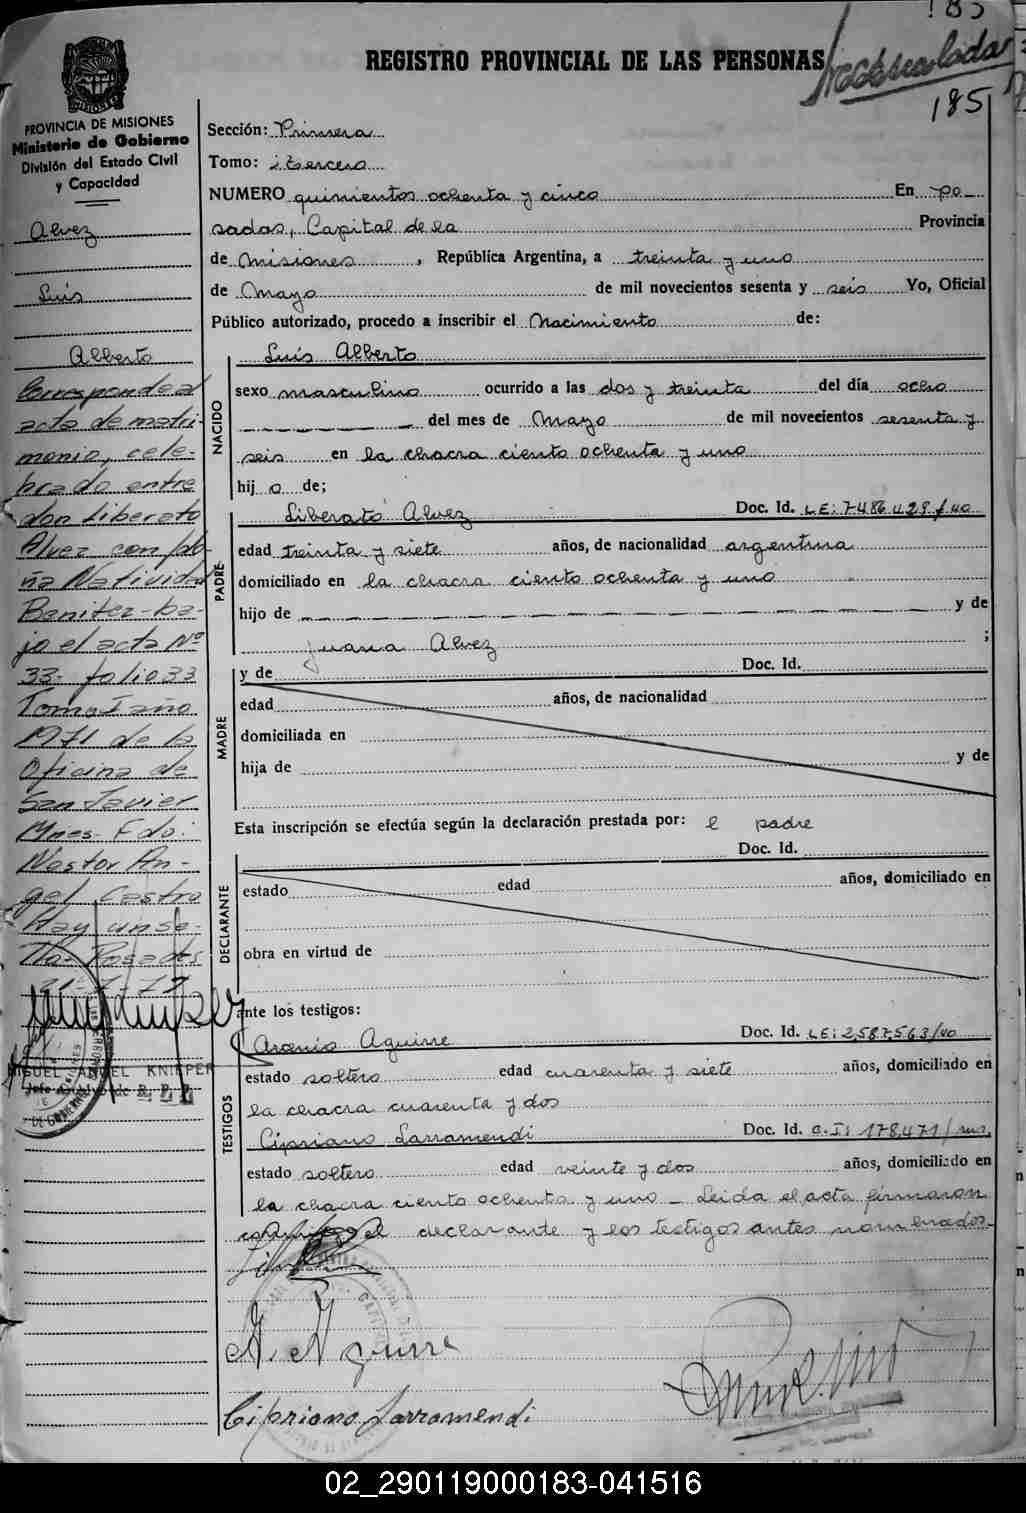 185
REGISTRO PROVINCIAL DE LAS PERSONAS
185
PROVINCIA DE MISIONES
Ministerio de Gobierno
División del Estado Civil
y Capacidad
Alvez
Luis
Alberto
Corresponde al
acta de matri-
monio, cele-
brado entre
don Liberato
Alvez con do-
ña Natividad
Benitez - ba-
jo el acta Nº
33 - folio 33
Tomo I año
1971 de la
Oficina de
San Javier
Mnes - Fdo:
Nestor An-
gel Castro
Hay un se-
llo - Posadas
MIGUEL ANGEL KNIEPER
Sección: Primera
Tomo: tercero
NUMERO quinientos ochenta y cinco En Po-
sadas, Capital de la Provincia
de Misiones, República Argentina, a treinta y uno
de Mayo de mil novecientos sesenta y seis Yo, Oficial
Público autorizado, procedo a inscribir el Nacimiento de:
NACIDO
Luis Alberto
sexo masculino ocurrido a las dos y treinta del día ocho
del mes de Mayo de mil novecientos sesenta y
seis en la chacra ciento ochenta y uno
hij o de;
PADRE
Liberato Alvez Doc. Id. LE: 7486429/40
edad treinta y siete años, de nacionalidad argentina
domiciliado en la chacra ciento ochenta y uno
hijo de y de
Juana Alvez ;
MADRE
y de Doc. Id.
edad años, de nacionalidad
domiciliada en
hija de y de
Esta inscripción se efectúa según la declaración prestada por: el padre
DECLARANTE
Doc. Id.
estado edad años, domiciliado en
obra en virtud de
ante los testigos:
TESTIGOS
Arsenio Aguirre Doc. Id. LE: 2,587,563/40
estado soltero edad cuarenta y siete años, domiciliado en
la chacra cuarenta y dos
Cipriano Larramendi Doc. Id. C.I: 178,471/mns.
estado soltero edad veinte y dos años, domiciliado en
la chacra ciento ochenta y uno - Leida el acta firmaron
el declarante y los testigos antes nombrados-
A. Aguirre
Cipriano Larramendi
02_290119000183-041516